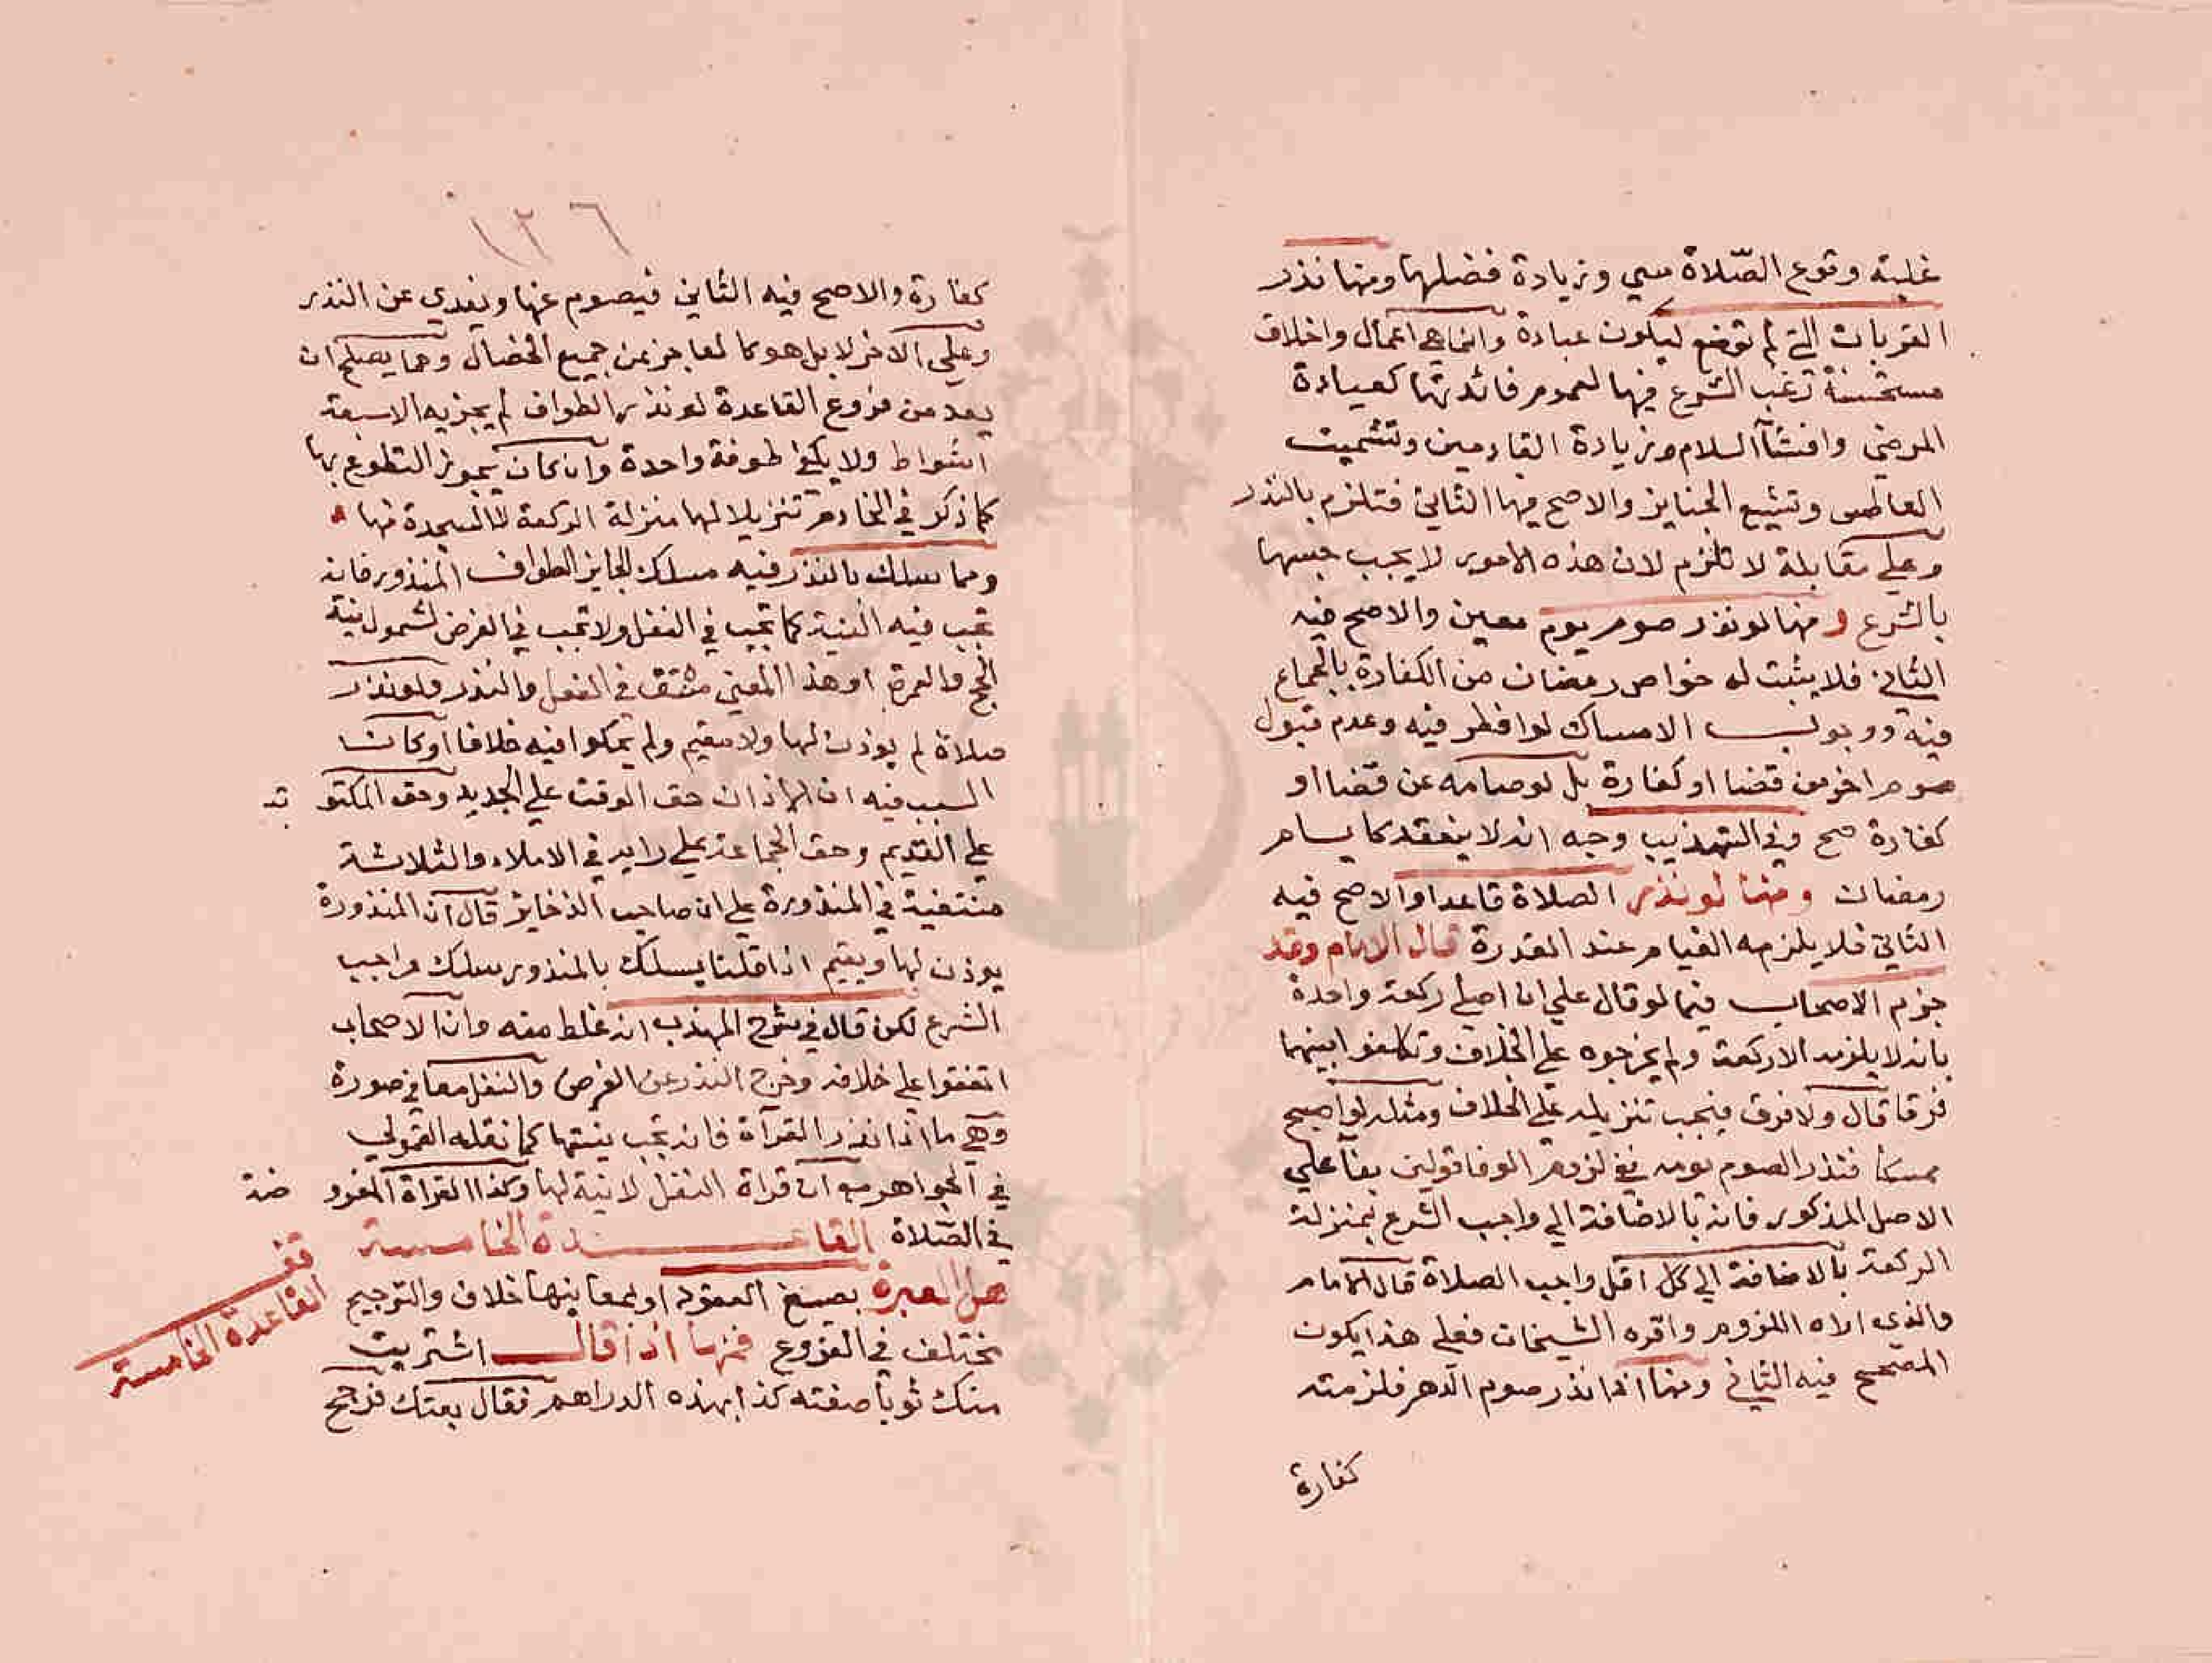 غلبته وقوع الصّلاة سيي وزيادة فضلها ومنها نذر
القربات التي لم توضع ليكون عبادة وانما هي اعمال واخلاق
مستحسنة رغب الشرع فيها لعموم فائدتها كعيادة
المرضي وافشآ السلام وزيادة القادمين وتشميت
العاطس وتشيع الجنايز والاصح فيها الثاني فتلزم بالنذر
وعلي مقابله لا تلزم لان هذه الامور لا يجب جنسها
بالشرع ومنها لو نذر صوم يوم معين والاصح فيه
الثاني فلا يثبت له خواص رمضان من الكفارة بالجماع
فيه ووجوب الامساك لو افطر فيه وعدم قبول
صوم اخر من قضا او كفارة بل لو صامه عن قضا او
كفارة صح وفي التهذيب وجه انه لا ينعقد كايام
رمضان ومنها لو نذر الصلاة قاعدا والاصح فيه
الثاني فلا يلزمه القيام عند القدرة قال الامام وقد
جزم الاصحاب فيما لو قال علي ان اصلي ركعة واحدة
بانه لا يلزمه الا ركعة ولم يخرجوه علي الخلاف وتكلفوا بينهما
فرقا قال ولا فرق فيجب تنزيله علي الخلاف ومثله لو اصبح
ممسكا فنذر الصوم يومه ففي لزوم الوفا قولين بنآ علي
الاصل المذكور فانه بالاضافة الي واجب الشرع بمنزلة
الركعة بالاضافة الي كل اقل واجب الصلاة قال الامام
والذي اراه اللزوم واقره الشيخان فعلي هذا يكون
المصحح فيه الثاني ومنها اذا نذر صوم الدهر فلزمته
كفارة
١٢٦
كفارة والاصح فيه الثاني فيصوم عنها ويفدي عن النذر
وعلي الاخر لا بل هو كالعاجز من جميع الخصال ومما يصلح ان
يعد من فروع القاعدة لو نذر الطواف لم يجزيه الا سبعة
اشواط ولا يكفي طوفة واحدة وان كان يجوز التطوع بها
كما ذكر في الخادم تنزيلا لها منزلة الركعة لا السجدة منها
ومما سلك بالنذر فيه مسلك الجايز الطواف المنذور فانه
تجب فيه النية كما تجب في النفل ولا تجب في الفرض لشمول نية
الحج والعمرة وهذا المعني منتف في النفل والنذر ولو نذر
صلاة لم يوذن لها ولا يقيم ولم يحكوا فيه خلافا وكان
السبب فيه ان الاذان حق الوقت علي الجديد وحق المكتوبة
علي القديم وحق الجماعة علي رايه في الاملاء والثلاثة
منتفية في المنذورة علي ان صاحب الذخاير قال ان المنذورة
يوذن لها ويقيم اذا قلنا يسلك بالمنذور مسلك واجب
الشرع لكن قال في شرح المهذب انه غلط منه وان الاصحاب
اتفقوا علي خلافه وخرج النذر عن الفرض والنفل معا في صورة
وهي ما اذا نذر القرآة فانه تجب نيتها كما نقله القمولي
في الجواهر مع ان قراة النفل لا نية لها وكذا القراة المفروضة
في الصّلاة القاعدة الخامسة
هل العبرة بصيغ العقود او بمعانيها خلاف والترجيح
مختلف في الفروع فمنها اذا قال اشتريت
منك ثوبا صفته كذا بهذه الدراهم فقال بعتك فرجح
قف
القاعدة الخامسة